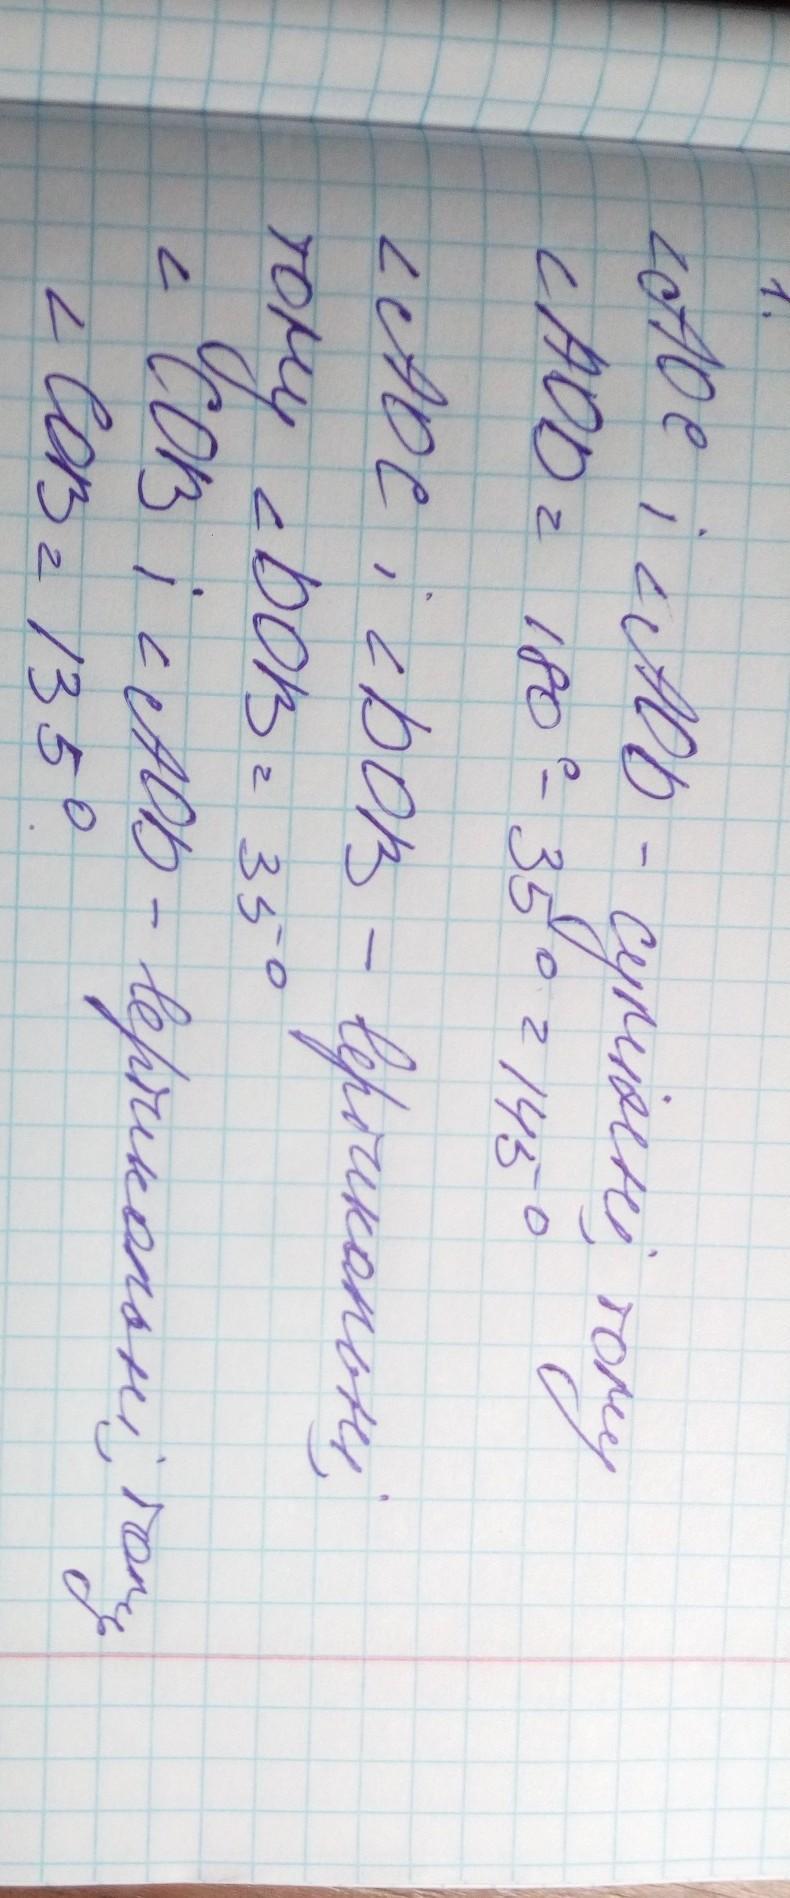 1.
∠AOC і ∠AOD - суміжні, тому
∠AOD = 180° - 35° = 145°
∠AOC і ∠DOB - вертикальні,
тому ∠DOB = 35°
∠COB і ∠AOD - вертикальні, тому
∠COB = 135°